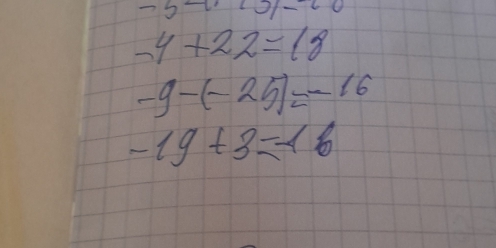 -4+22=18
-9-(-25)=-16
-19+3=-16